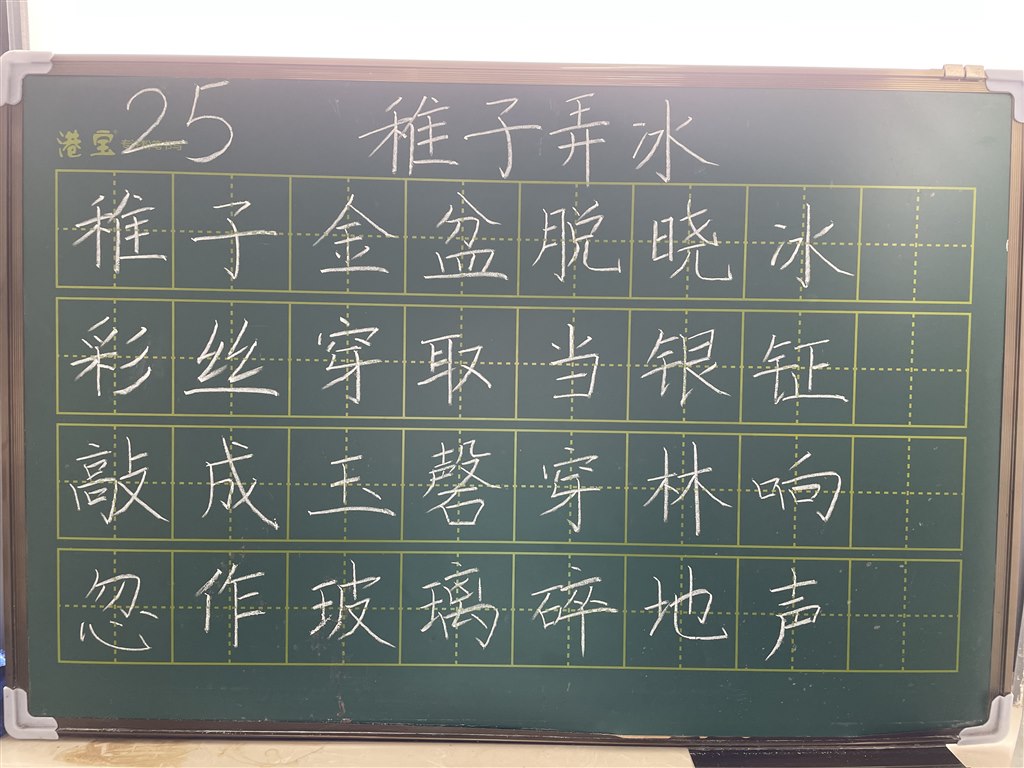 25 稚子弄冰
港宝
稚子金盆脱晓冰
彩丝穿取当银钲
敲成玉磬穿林响
忽作玻璃碎地声